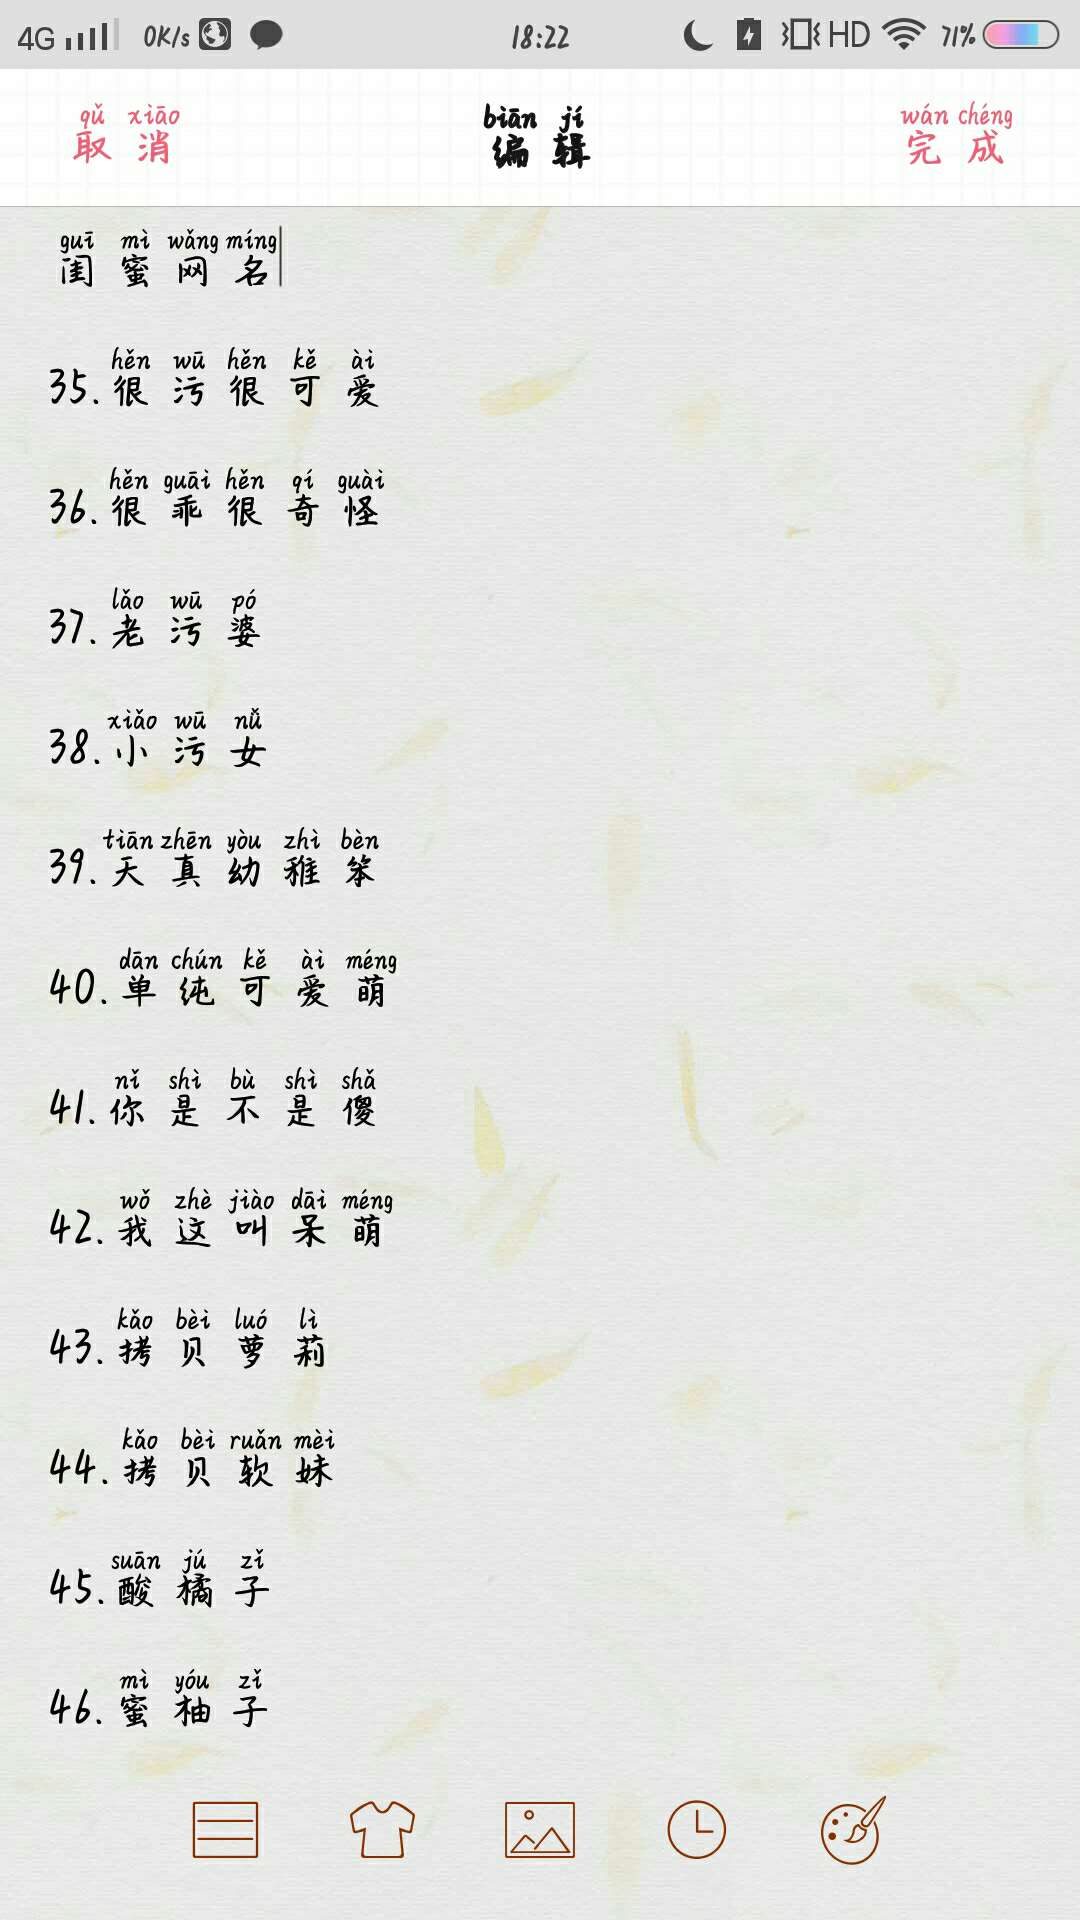 4G 0K/s 18:22 HD 71%
qǔ xiāo biān jí wán chéng
取消 编辑 完成
guī mì wǎng míng
闺蜜网名
hěn wū hěn kě ài
35.很污很可爱
hěn guāi hěn qí guài
36.很乖很奇怪
lǎo wū pó
37.老污婆
xiǎo wū nǚ
38.小污女
tiān zhēn yòu zhì bèn
39.天真幼稚笨
dān chún kě ài méng
40.单纯可爱萌
nǐ shì bù shì shǎ
41.你是不是傻
wǒ zhè jiào dāi méng
42.我这叫呆萌
kǎo bèi luó lì
43.拷贝萝莉
kǎo bèi ruǎn mèi
44.拷贝软妹
suān jú zǐ
45.酸橘子
mì yóu zǐ
46.蜜柚子